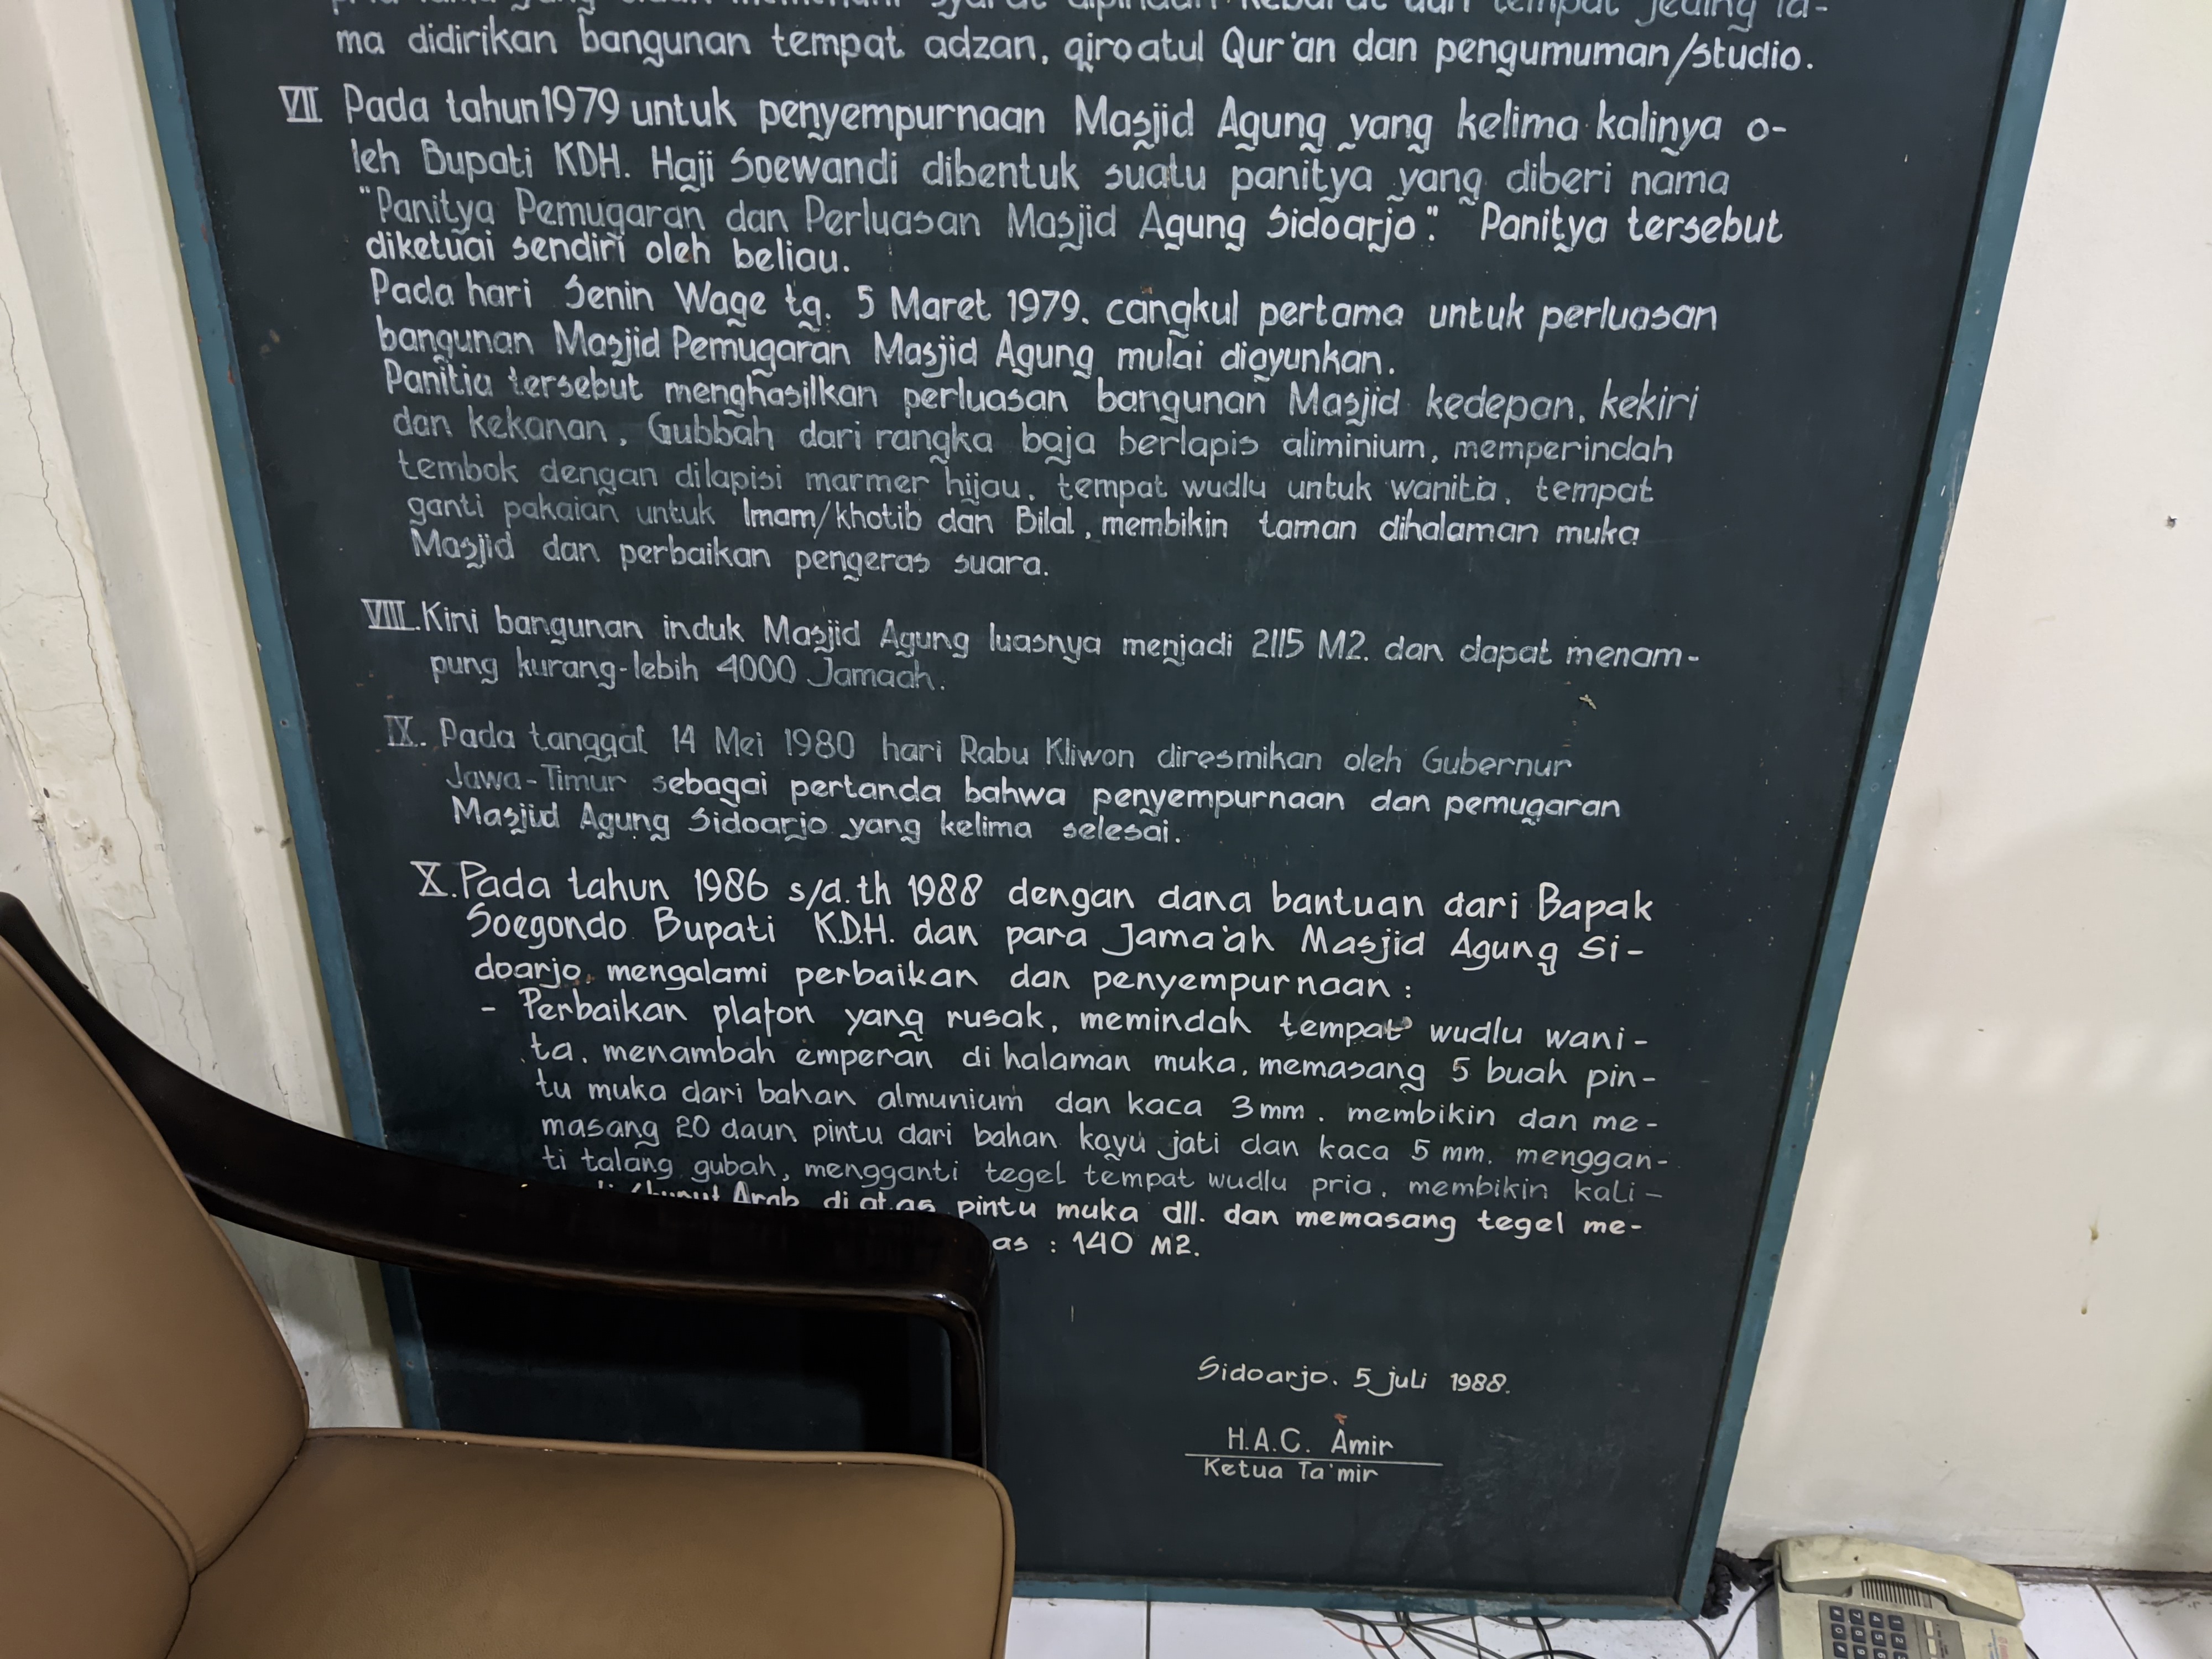 syarat dipindah kebarat dan tempat jeding la-
ma didirikan bangunan tempat adzan, qiroatul Qur'an dan pengumuman/studio.
VII Pada tahun 1979 untuk penyempurnaan Masjid Agung yang kelima kalinya o-
leh Bupati KDH. Haji Soewandi dibentuk suatu panitya yang diberi nama
"Panitya Pemugaran dan Perluasan Masjid Agung Sidoarjo". Panitya tersebut
diketuai sendiri oleh beliau.
Pada hari Senin Wage tg. 5 Maret 1979. cangkul pertama untuk perluasan
bangunan Masjid Pemugaran Masjid Agung mulai diayunkan.
Panitia tersebut menghasilkan perluasan bangunan Masjid kedepan, kekiri
dan kekanan, Gubbah dari rangka baja berlapis aliminium, memperindah
tembok dengan dilapisi marmer hijau, tempat wudlu untuk wanita, tempat
ganti pakaian untuk Imam/khotib dan Bilal, membikin taman dihalaman muka
Masjid dan perbaikan pengeras suara.
VIII. Kini bangunan induk Masjid Agung luasnya menjadi 2115 M2. dan dapat menam-
pung kurang-lebih 4000 Jamaah.
IX. Pada tanggal 14 Mei 1980 hari Rabu Kliwon diresmikan oleh Gubernur
Jawa-Timur sebagai pertanda bahwa penyempurnaan dan pemugaran
Masjid Agung Sidoarjo yang kelima selesai.
X. Pada tahun 1986 s/d. th 1988 dengan dana bantuan dari Bapak
Soegondo Bupati K.D.H. dan para Jama'ah Masjid Agung Si-
doarjo mengalami perbaikan dan penyempurnaan :
- Perbaikan plafon yang rusak, memindah tempat wudlu wani-
ta, menambah emperan di halaman muka, memasang 5 buah pin-
tu muka dari bahan almunium dan kaca 3mm. membikin dan me-
masang 20 daun pintu dari bahan kayu jati dan kaca 5 mm. menggan-
ti talang gubah, mengganti tegel tempat wudlu pria, membikin kali-
Arab di atas pintu muka dll. dan memasang tegel me-
as : 140 M2.
Sidoarjo. 5 juli 1988.
H.A.C. Amir
Ketua Ta'mir